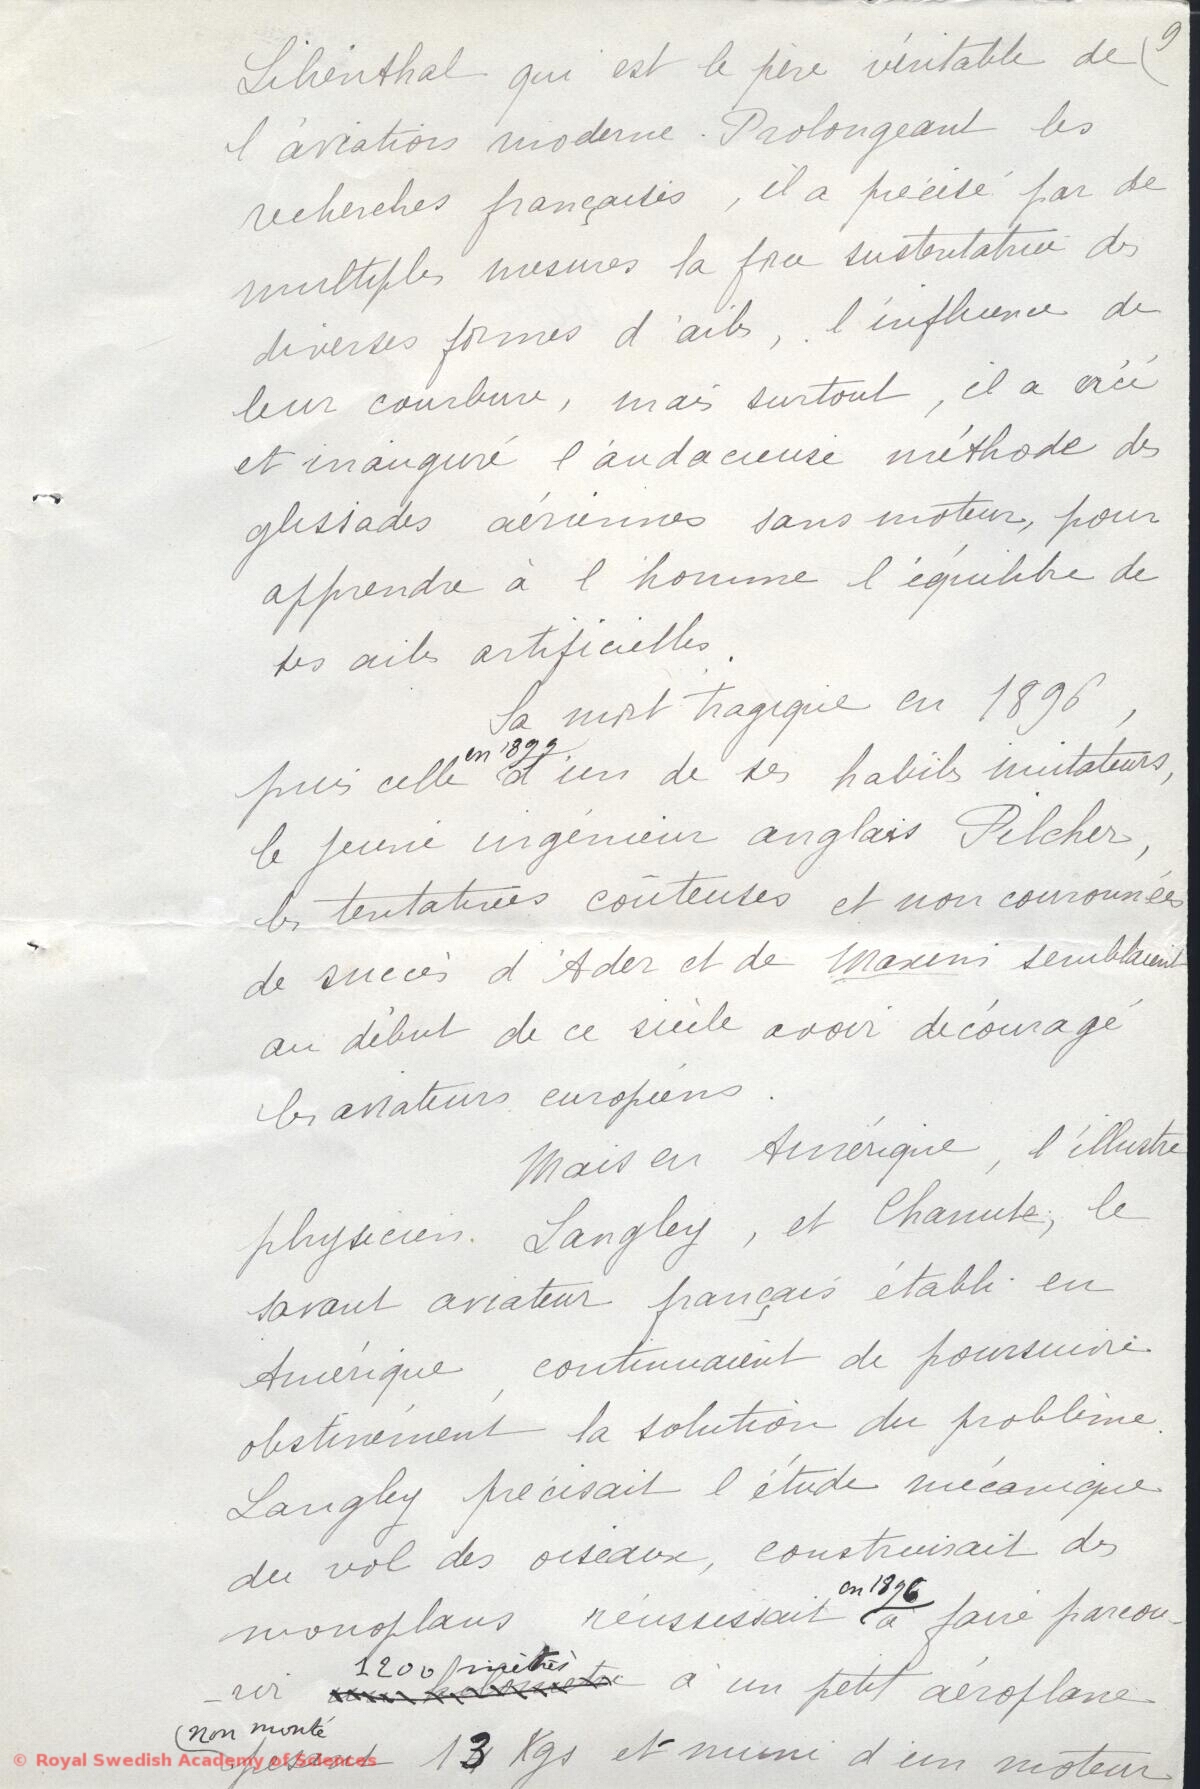 9
Lilienthal qui est le père véritable de
l'aviation moderne. Prolongeant les
recherches françaises, il a précisé par de
multiples mesures la force sustentatrice des
diverses formes d'ailes, l'influence de
leur courbure, mais surtout, il a créé
et inauguré l'audacieuse méthode des
glissades aériennes sans moteur, pour
apprendre à l'homme l'équilibre de
ses ailes artificielles.
Sa mort tragique en 1896,
puis celle en 1899 d'un de ses habiles imitateurs,
le jeune ingénieur anglais Pilcher,
les tentatives coûteuses et non couronnées
de succès d'Ader et de Maxim semblaient
au début de ce siècle avoir découragé
les aviateurs européens.
Mais en Amérique, l'illustre
physicien Langley, et Chanute, le
savant aviateur français établi en
Amérique, continuaient de poursuivre
obstinément la solution du problème.
Langley précisait l'étude mécanique
du vol des oiseaux, construisait des
monoplans réussissait en 1896 à faire parcou-
-rir 1200 mètres à un petit aéroplane
(non monté
pesant 13 Kgs et muni d'un moteur
© Royal Swedish Academy of Sciences